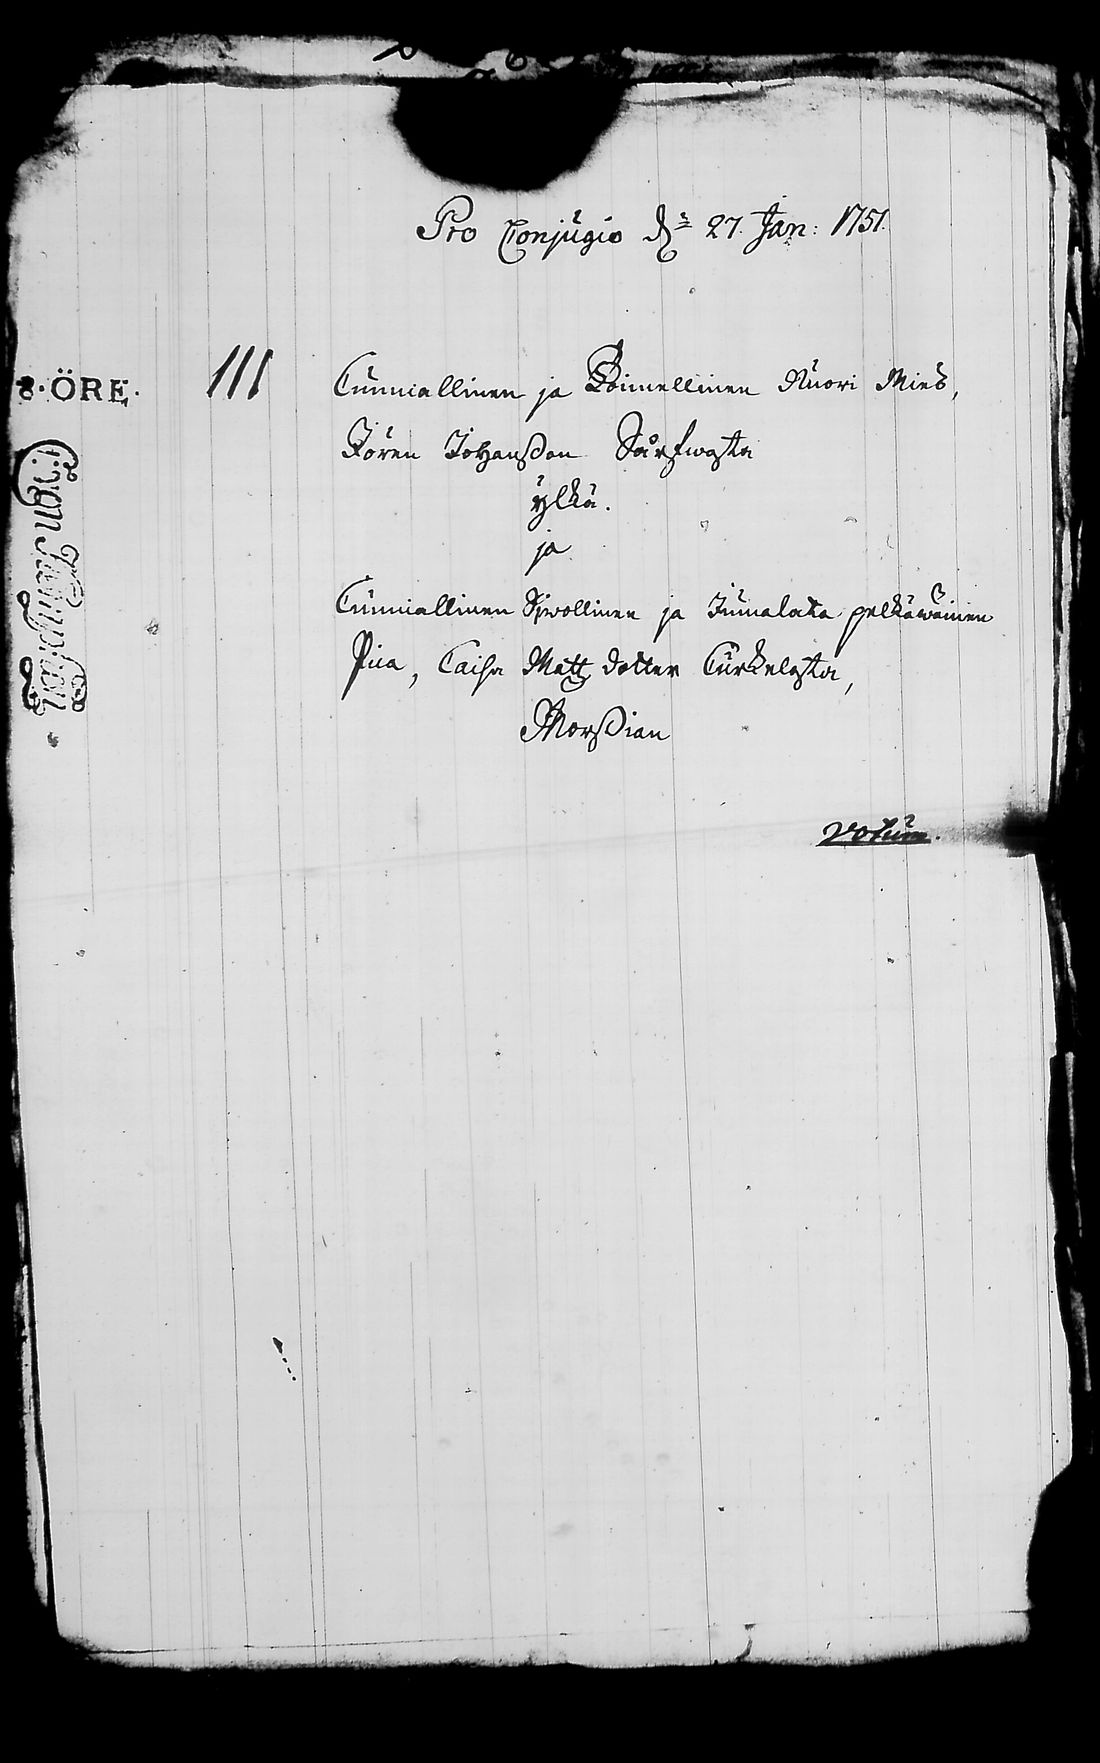 Pro Conjugio d. 27 Jan: 1751.
8. ÖRE.
111
Cunniallinen ja Toimellinen Nuori Mies,
Jören Johansson Särfwasta
ylkä.
ja
Cunniallinen Siwollinen ja Jumalata pelkäwäinen
Pica, Caisa Matts dotter Turkelasta,
Morsian
Votum.